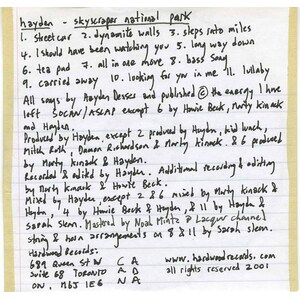 hayden - skyscraper national park
1. streetcar 2. dynamite walls 3. steps into miles
4. I should have been watching you 5. long way down
6. tea pad 7. all in one move 8. bass song
9. carried away 10. looking for you in me 11. lullaby
All songs by Hayden Desser and published © the energy I have
left SOCAN/ASCAP except 6 by Howie Beck, Marty Kinack
and Hayden.
Produced by Hayden, except 2 produced by Hayden, kid lunch,
Mitch Roth, Damon Richardson & Marty Kinack. & 6 produced
by Marty Kinack & Hayden.
Recorded & edited by Hayden. Additional recording & editing
by Marty Kinack & Howie Beck.
Mixed by Hayden, except 2 & 6 mixed by Marty Kinack &
Hayden, 4 by Howie Beck & Hayden, & 11 by Hayden &
Sarah Slean. Mastered by Noah Mintz @ Lacquer channel
string & horn arrangements on 8 & 11 by Sarah Slean.
Hardwood Records:
689 Queen St W CA www.hardwoodrecords.com
suite 68 Toronto AD all rights reserved 2001
ON. M6J 1E6 NA